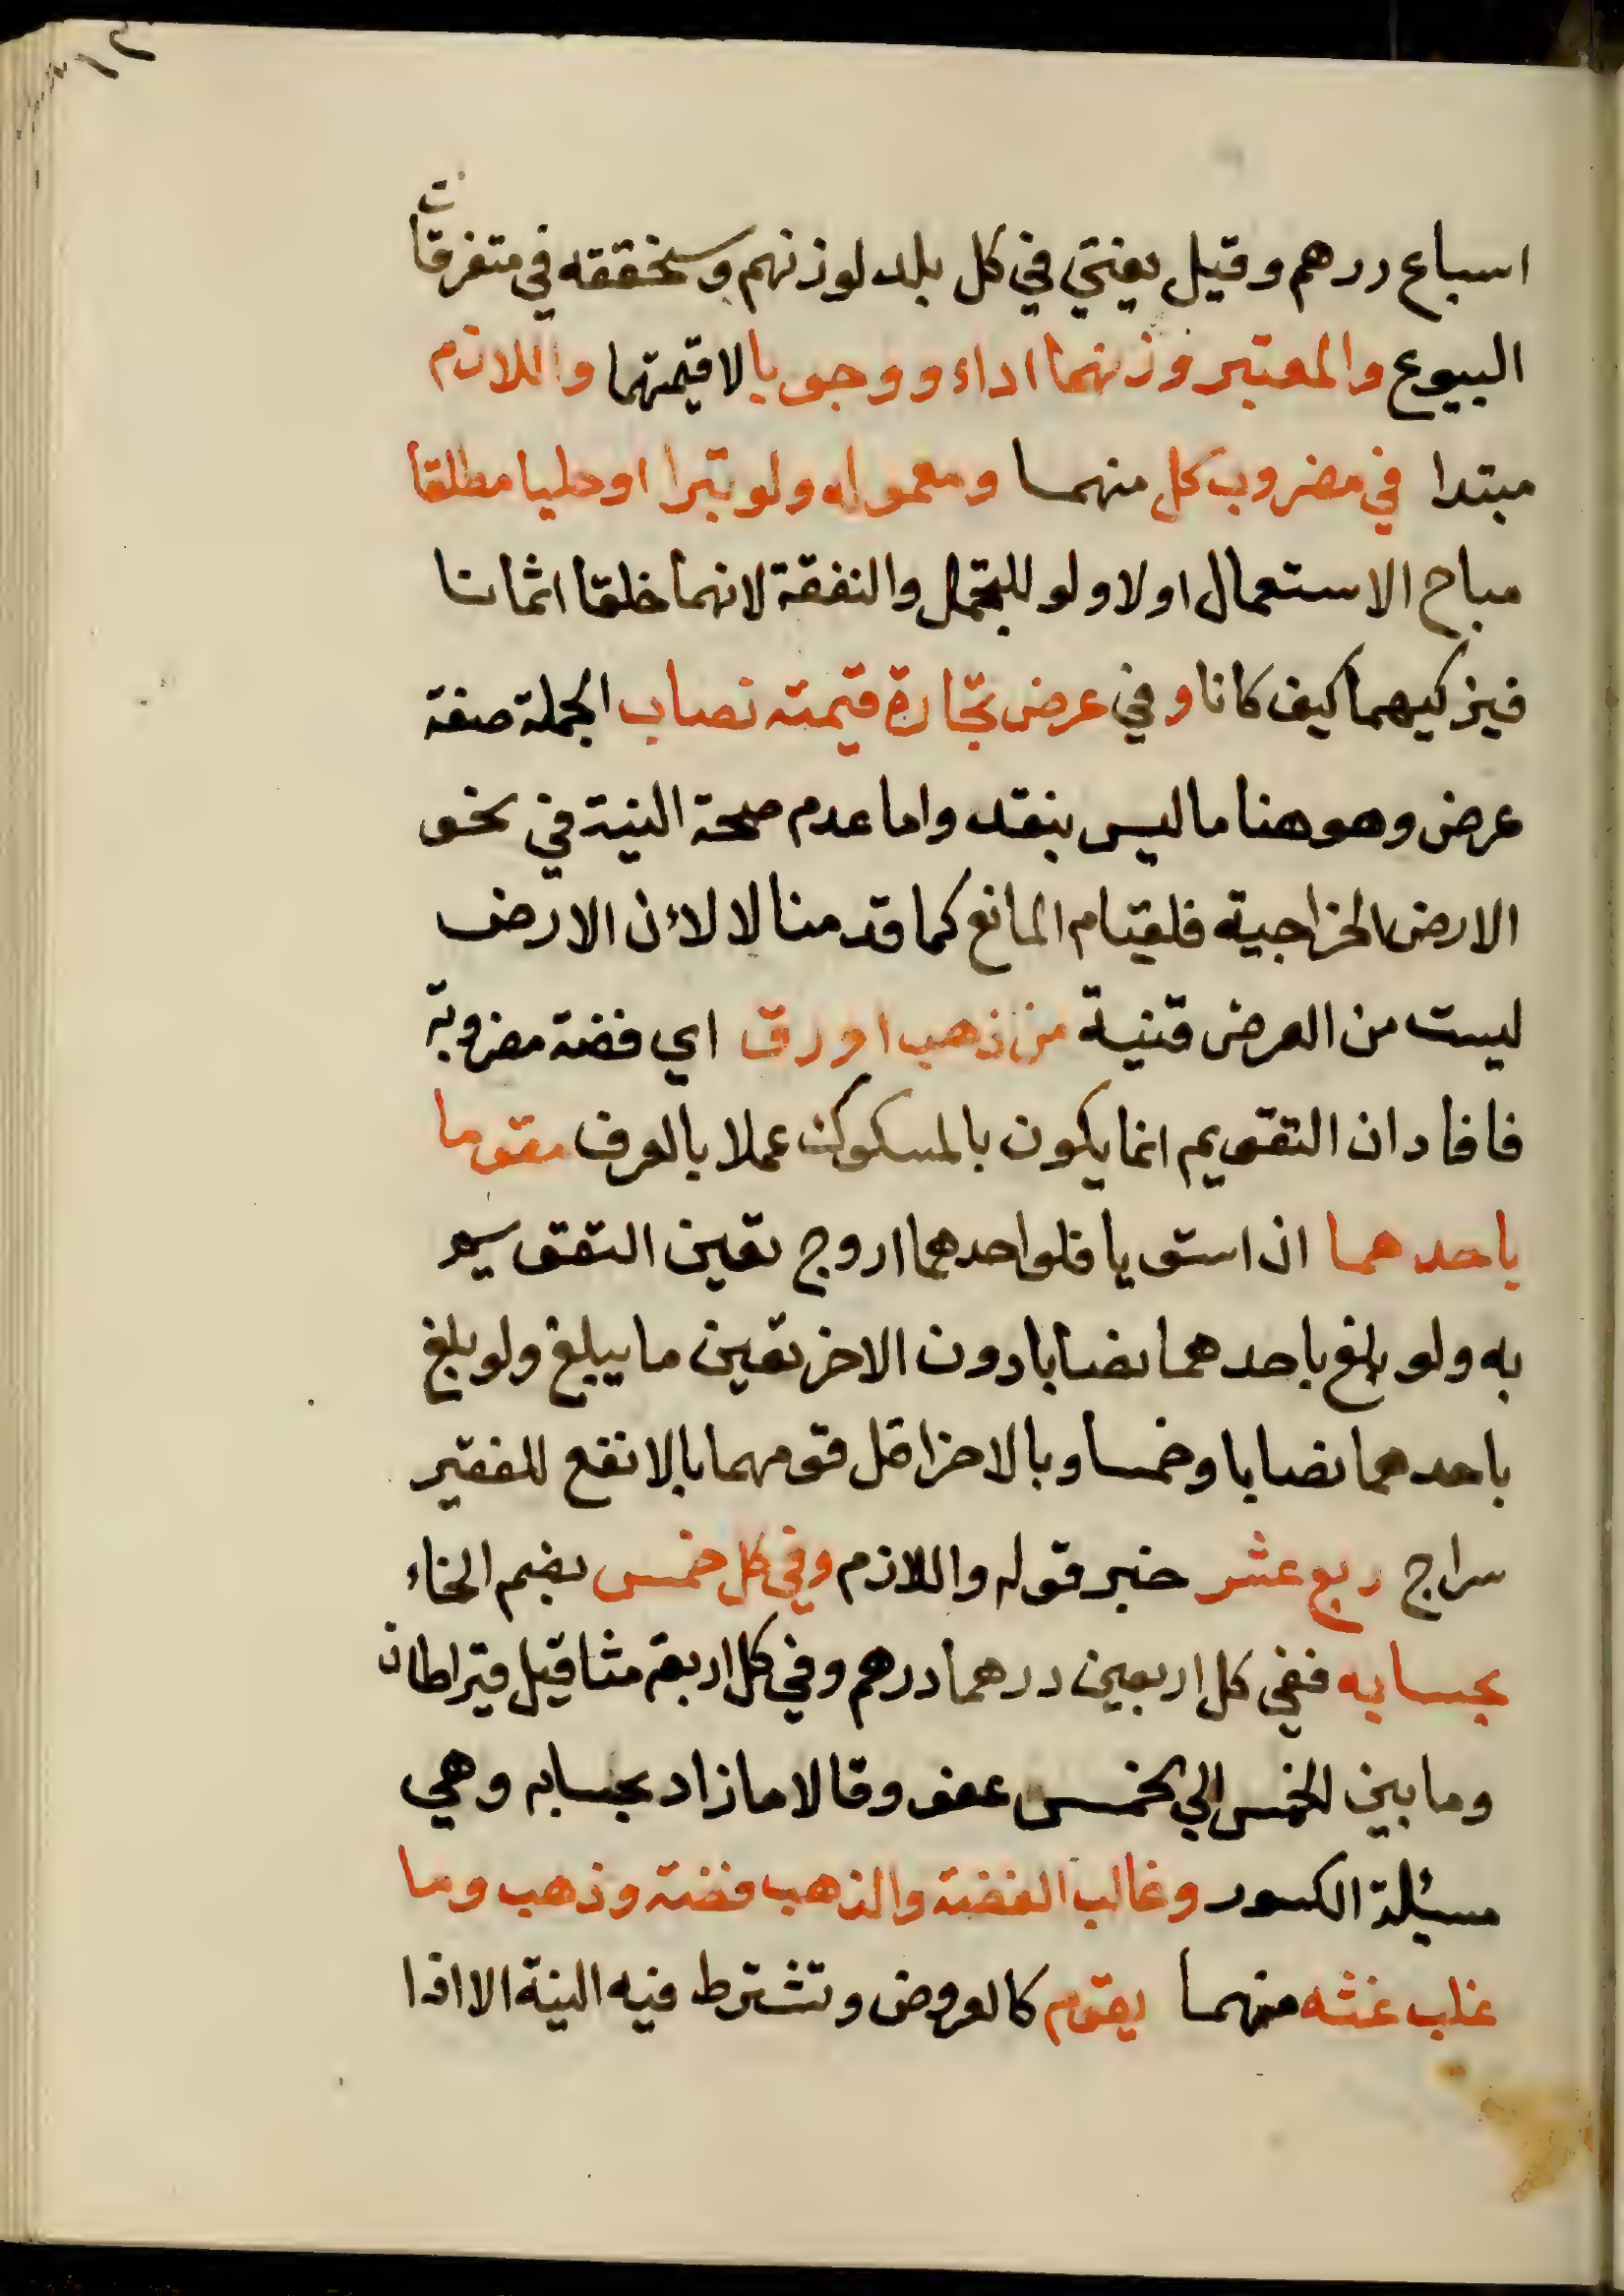 اسباع درهم وقيل يفتي في كل بلد لوزنهم وسنحققه في متفرقات
البيوع والمعتبر وزنهما اداء ووجوبا لا قيمتهما واللازم
مبتدا في مضروب كل منهما ومعموله ولو تبرا او حليا مطلقا
مباح الاستعمال اولا ولو للتجمل والنفقة لانهما خلقا اثمانا
فيزكيهما كيف كانا وفي عرض تجارة قيمته نصاب الجملة صفة
عرض وهو هنا ما ليس بنقد واما عدم صحة النية في نحو
الارض الخراجية فلقيام المانع كما قدمنا لا لائن الارض
ليست من العرض قنية من ذهب او رق اي فضة مضروبة
فافاد ان التقويم انما يكون بالمسكوك عملا بالعرف مقوما
باحدهما ان استويا فلو احدهما اروج تعين التقويم
به ولو بلغ باحدهما نصابا دون الاخر تعين ما يبلغ ولو بلغ
باحدهما نصابا وخمسا وبالاخر اقل قومهما بالانفع للفقير
سراج ربع عشر خبر قوله واللازم وفي كل خمس بضم الخاء
بحسابه ففي كل اربعين درهما درهم وفي كل اربعة مثاقيل قيراطان
وما بين الخمس الي الخمس عفو وقالا ما زاد بحسابه وهي
مسئلة الكسور وغالب الفضة والذهب فضة وذهب وما
غلب غشه منهما يقوم كالعروض وتشترط فيه النية الا اذا